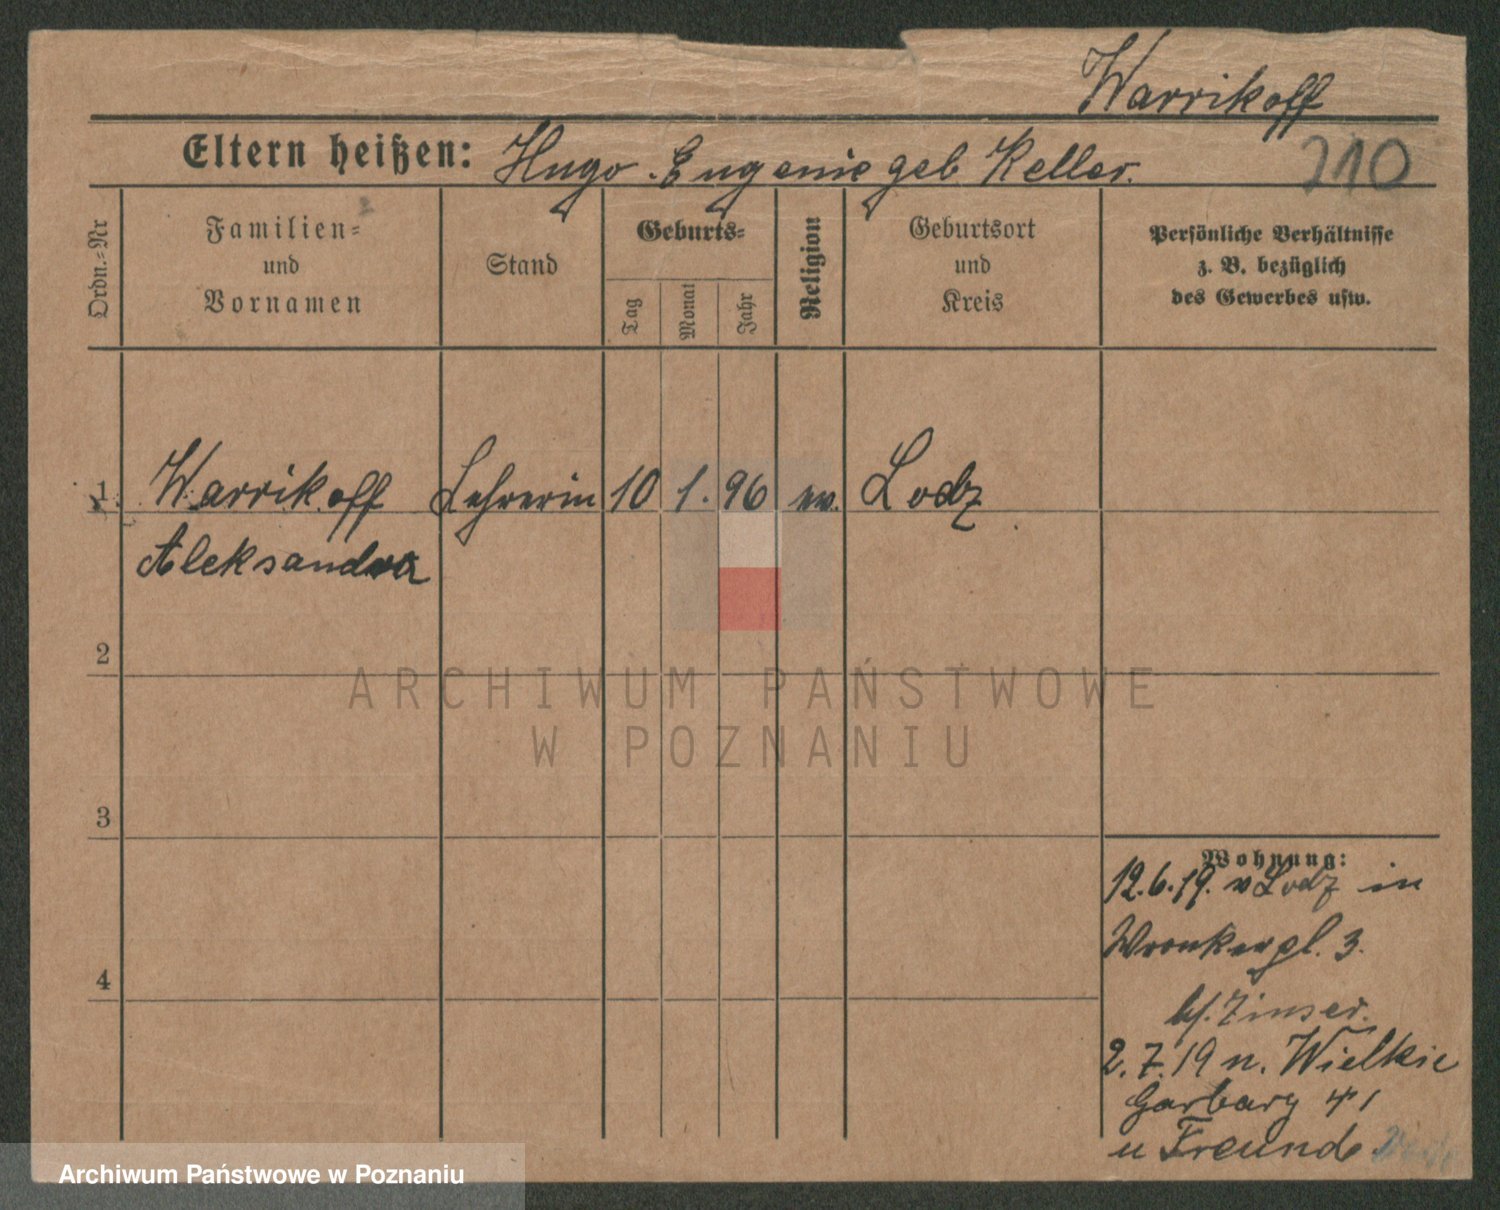 Warrikoff
Eltern heißen: Hugo Eugenie geb Keller.
210
Ordn.-Nr
Familien- und Vornamen
Stand
Geburts-
Tag
Monat
Jahr
Religion
Geburtsort und Kreis
Persönliche Verhältnisse
z. B. bezüglich
des Gewerbes usw.
1 Warrikoff Lehrerin 10 1. 96 ev. Lodz
Aleksandra
2
3
4
ARCHIWUM PAŃSTWOWE
W POZNANIU
Wohnung:
12.6.19. v Lodz in
Wronkerpl. 3.
bei Zinser.
2.7.19 n. Wielkie
Garbary 41
u Freund.
Archiwum Państwowe w Poznaniu